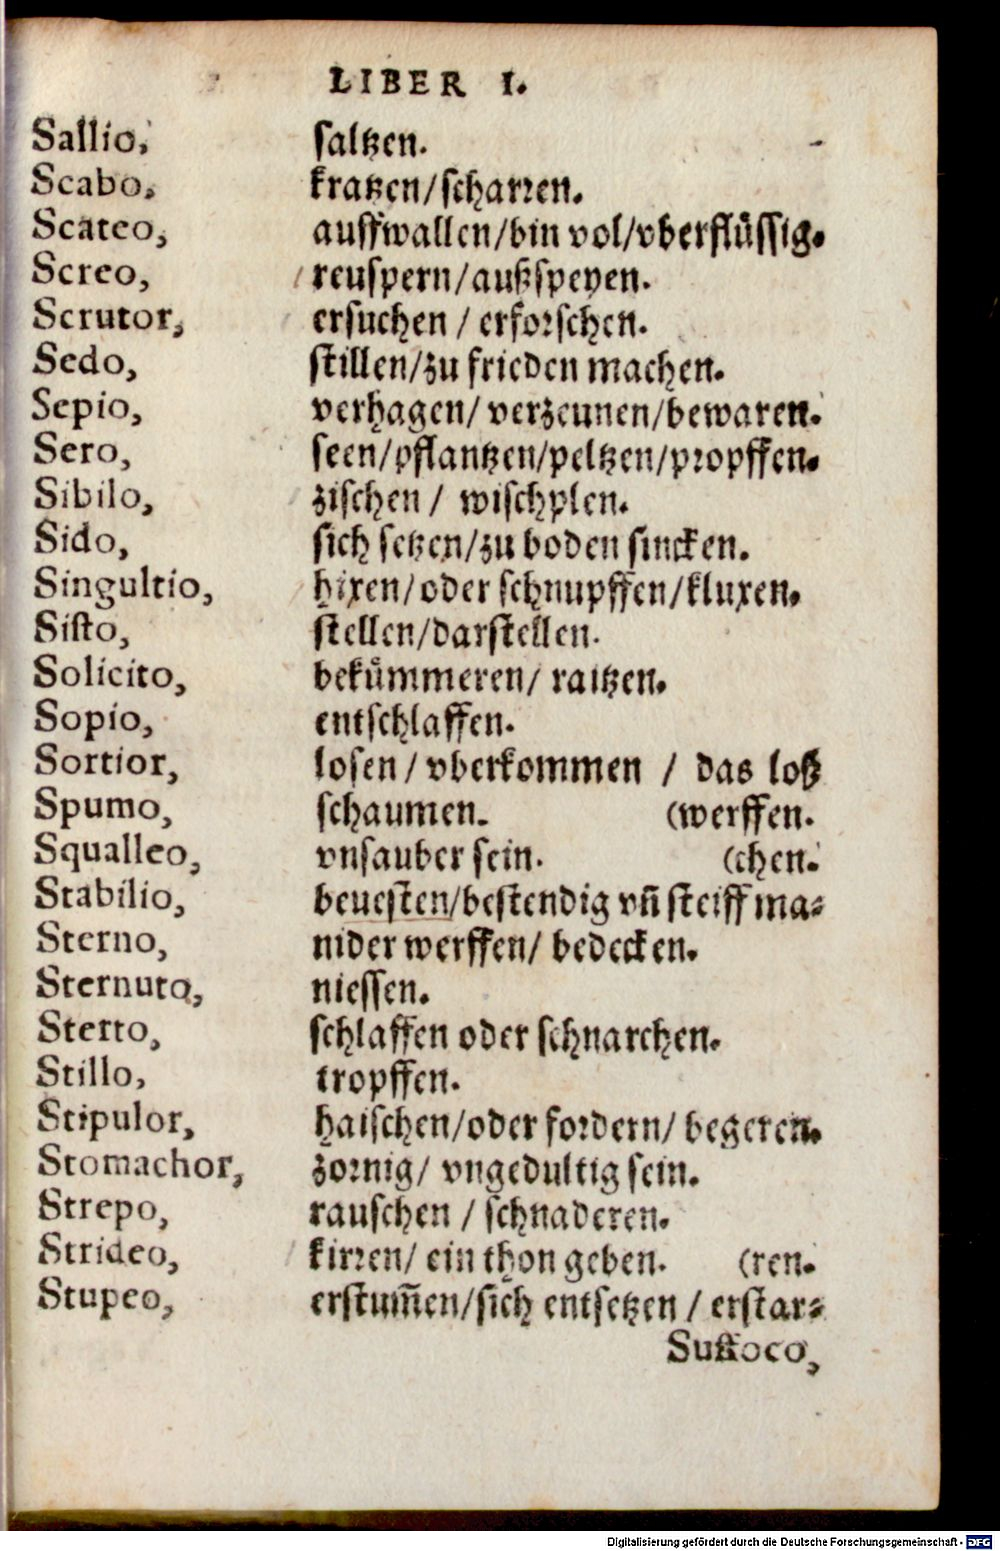 LIBER I.
Sallio, ſaltzen.
Scabo, kratzen/ſcharꝛen.
Scateo, auffwallen/bin vol/vberflüſſig.
Screo, reuſpern/außſpeyen.
Scrutor, erſuchen / erfoꝛſchen.
Sedo, ſtillen/zu frieden machen.
Sepio, verhagen/ verzeunen/bewaren.
Sero, ſeen/pflantzen/peltzen/pꝛopffen.
Sibilo, ziſchen / wiſchplen.
Sido, ſich ſetzen/zu boden ſincken.
Singultio, hixen/oder ſchnupffen/kluxen.
Siſto, ſtellen/darſtellen.
Solicito, bekümmeren/ raitzen.
Sopio, entſchlaffen.
Sortior, loſen / vberkommen / das loß
Spumo, ſchaumen. (werffen.
Squalleo, vnſauber ſein. (chen.
Stabilio, beueſten/beſtendig vn̄ ſteiff ma⸗
Sterno, nider werffen/ bedecken.
Sternuto, nieſſen.
Sterto, ſchlaffen oder ſchnarchen.
Stillo, tropffen.
Stipulor, haiſchen/oder foꝛdern/ begeren.
Stomachor, zoꝛnig/ vngedultig ſein.
Strepo, rauſchen / ſchnaderen.
Strideo, kirꝛen/ ein thon geben. (ren.
Stupeo, erſtum̄en/ſich entſetzen / erſtar⸗
Suffoco,
Digitalisierung gefördert durch die Deutsche Forschungsgemeinschaft - DFG